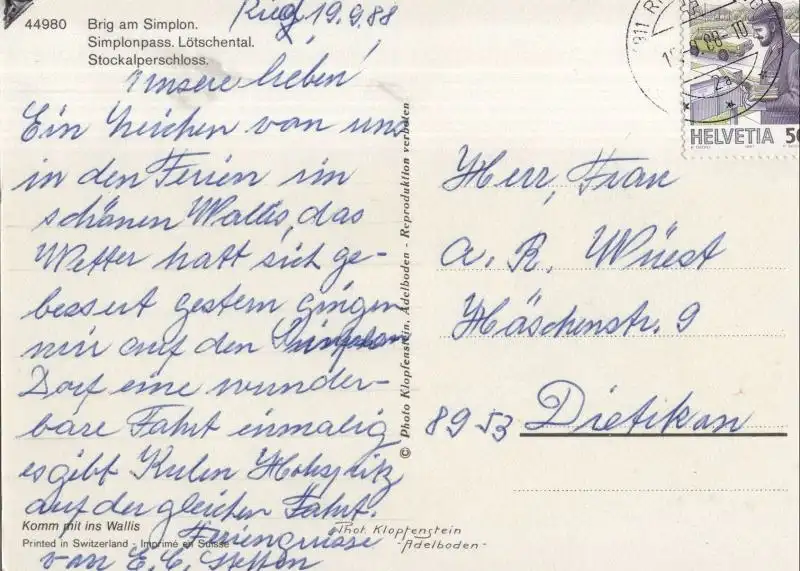 44980 Brig am Simplon.
Simplonpass. Lötschental.
Stockalperschloss.
19.9.88
Unsere lieben
Ein Zeichen von uns
in den Ferien im
schönen Wallis, das
Wetter hatt sich ge-
bessert gestern gingen
wir auf den Simplon
Dorf eine wunder-
bare Fahrt einmalig
es gibt
auf der gleichen Fahrt.
Feriengrüsse
von E. C.
Komm mit ins Wallis
Printed in Switzerland - Imprimé en Suisse
© Photo Klopfenstein, Adelboden - Reproduktion verboten
Phot. Klopfenstein
-Adelboden-
HELVETIA
Herr, Frau
A. R. Wüest
Häschenstr. 9
8953 Dietikon